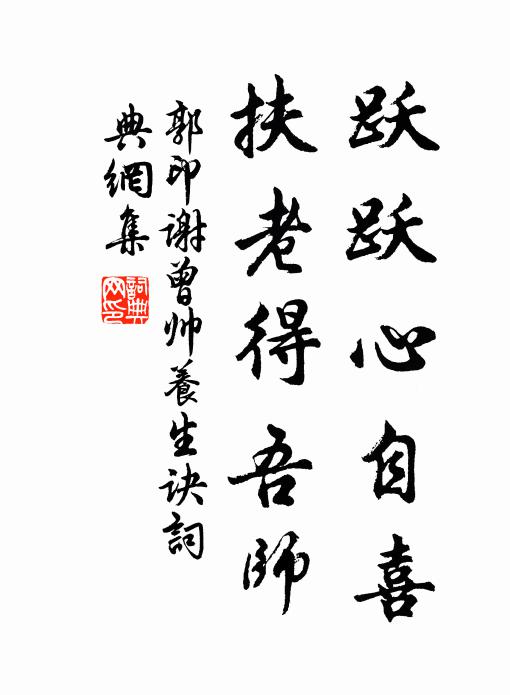 跃跃心自喜
扶老得吾師
郭印谢曾帅養生诀詞
典網集
詞典
网印